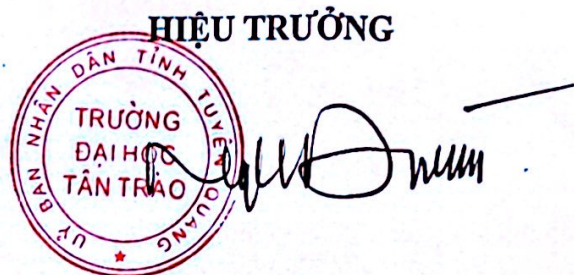 HIỆU TRƯỞNG
UỶ BAN NHÂN DÂN TỈNH TUYÊN QUANG
TRƯỜNG
ĐẠI HỌC
TÂN TRÀO